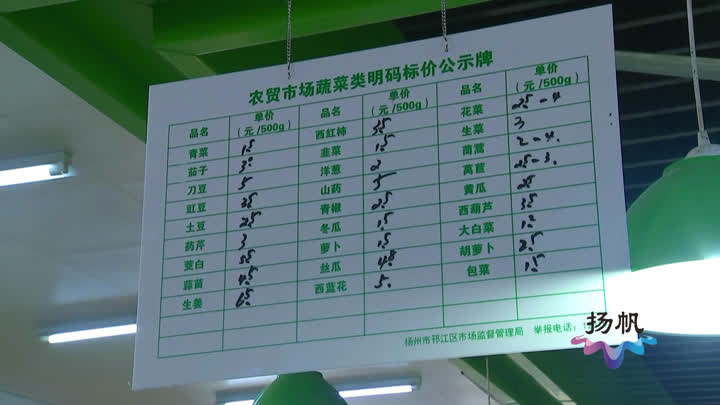 农贸市场蔬菜类明码标价公示牌
品名 单价（元/500g） 品名 单价（元/500g） 品名 单价（元/500g）
青菜 15 西红柿 35 花菜 25-4
茄子 3 韭菜 15 生菜 3
刀豆 5 洋葱 2 茼蒿 2-4.
豇豆 35 山药 5 莴苣 25-3.
土豆 25 青椒 25 黄瓜 25
药芹 3 冬瓜 15 西葫芦 35
茭白 萝卜 15 大白菜
蒜苗 45 丝瓜 48 胡萝卜 25
生姜 65 西蓝花 5. 包菜 15
扬州市邗江区市场监督管理局 举报电话：
扬帆